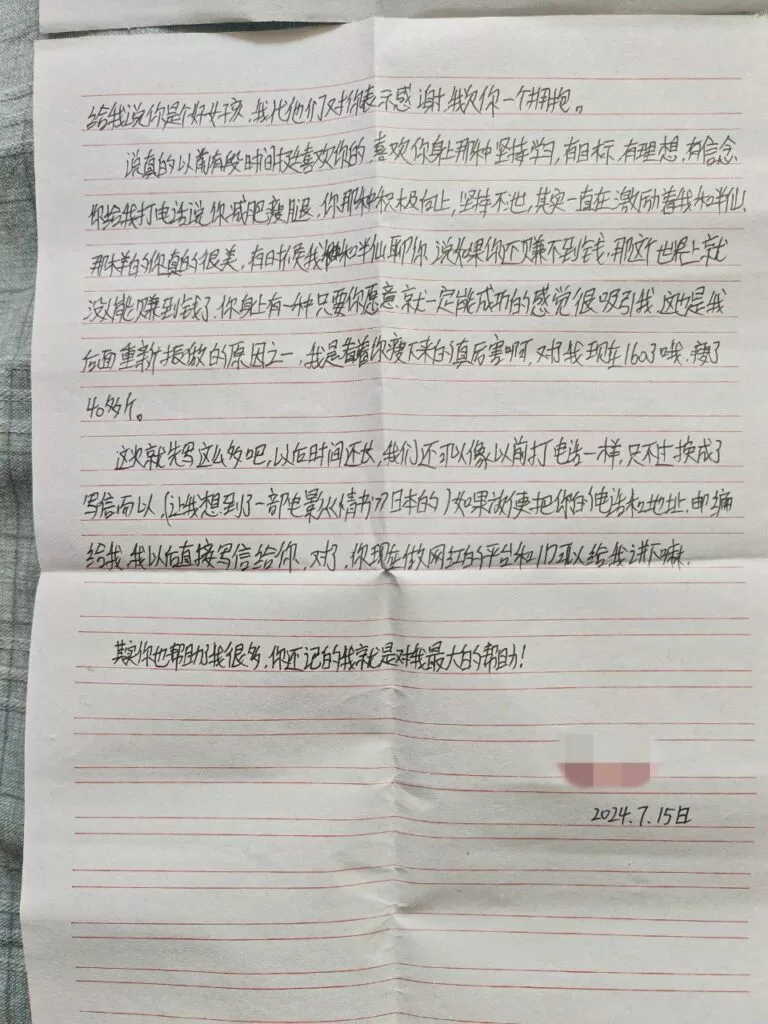 给我说你是个好女孩，我代他们对你表示感谢，我欠你一个拥抱。
说真的以前有段时间挺喜欢你的，喜欢你身上那种坚持学习，有目标，有理想，有信念
你给我打电话说你减肥瘦腿，你那种积极向上，坚持不泄，其实一直在激励着我和半仙
那样的你真的很美，有时候我和半仙聊你说如果你还赚不到钱，那这个世界上就
没人能赚到钱了，你身上有一种只要你愿意就一定能成功的感觉很吸引我，这也是我
后面重新振做的原因之一，我是看着你瘦下来的真厉害啊，对了我现在160了哦，瘦了
40多斤。
这次就先写这么多吧，以后时间还长，我们还可以像以前打电话一样，只不过换成了
写信而以（让我想到了一部电影《情书》日本的）如果方便把你的电话和地址，邮编
给我，我以后直接写信给你，对了，你现在做网红的平台和ID可以给我讲下嘛，
其实你也帮助了我很多，你还记的我就是对我最大的帮助！
2024.7.15日